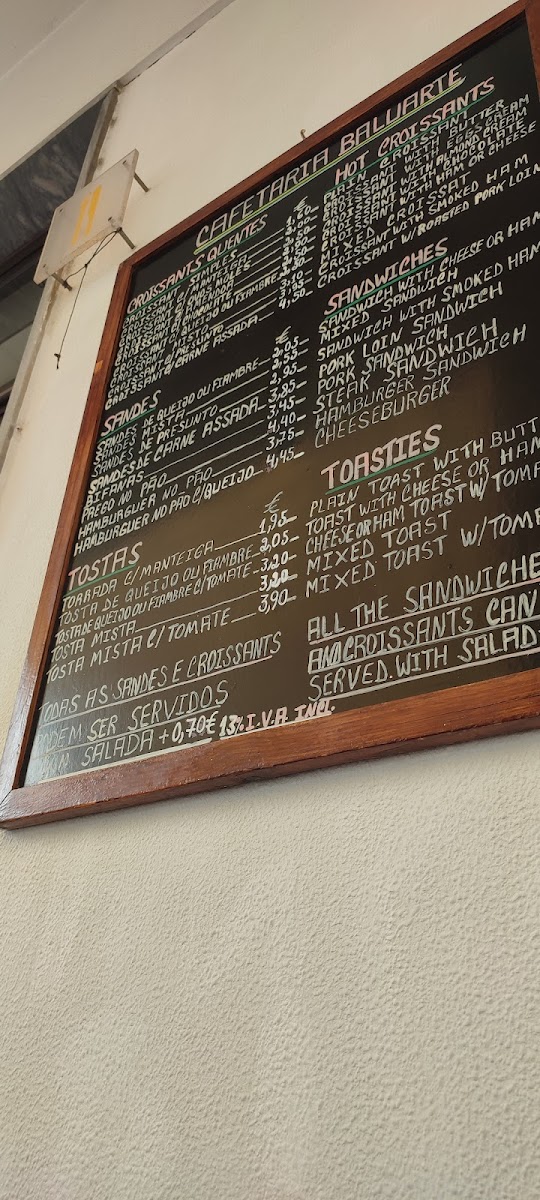 CAFETARIA BALUARTE
CROISSANTS QUENTES €
CROISSANT SIMPLES 1,60
CROISSANT C/ MANTEIGA
CROISSANT
CROISSANT C/
CROISSANT C/ QUEIJO OU FIAMBRE
CROISSANT MISTO
CROISSANT C/ PRESUNTO
CROISSANT C/ CARNE ASSADA 4,50
SANDES €
SANDES DE QUEIJO OU FIAMBRE 2,05
SANDES MISTA 2,55
SANDES DE PRESUNTO 2,95
SANDES DE CARNE ASSADA 3,85
BIFANAS 3,45
PREGO NO PÃO 4,40
HAMBURGUER NO PÃO 3,75
HAMBURGUER NO PÃO C/QUEIJO 4,45
TOSTAS €
TORRADA C/MANTEIGA 1,95
TOSTA DE QUEIJO OU FIAMBRE 2,05
TOSTA DE QUEIJO OU FIAMBRE C/TOMATE 3,20
TOSTA MISTA 3,20
TOSTA MISTA C/ TOMATE 3,90
TODAS AS SANDES E CROISSANTS
PODEM SER SERVIDOS
COM SALADA + 0,70€ 13% I.V.A. INCL.
HOT CROISSANTS
PLAIN CROISSANT
CROISSANT WITH BUTTER
CROISSANT WITH EGGS CREAM
CROISSANT WITH ALMOND CREAM
CROISSANT WITH CHOCOLATE
CROISSANT WITH HAM OR CHEESE
MIXED CROISSAT
CROISSANT WITH SMOKED HAM
CROISSANT W/ROASTED PORK LOIN
SANDWICHES
SANDWICH WITH CHEESE OR HAM
MIXED SANDWICH
SANDWICH WITH SMOKED HAM
PORK LOIN SANDWICH
PORK SANDWICH
STEAK SANDWICH
HAMBURGER SANDWICH
CHEESEBURGER
TOASTIES
PLAIN TOAST WITH BUTT
TOAST WITH CHEESE OR HAM
CHEESE OR HAM TOAST W/ TOMA
MIXED TOAST
MIXED TOAST W/TOM
ALL THE SANDWICHE
AND CROISSANTS CAN
SERVED. WITH SALAD